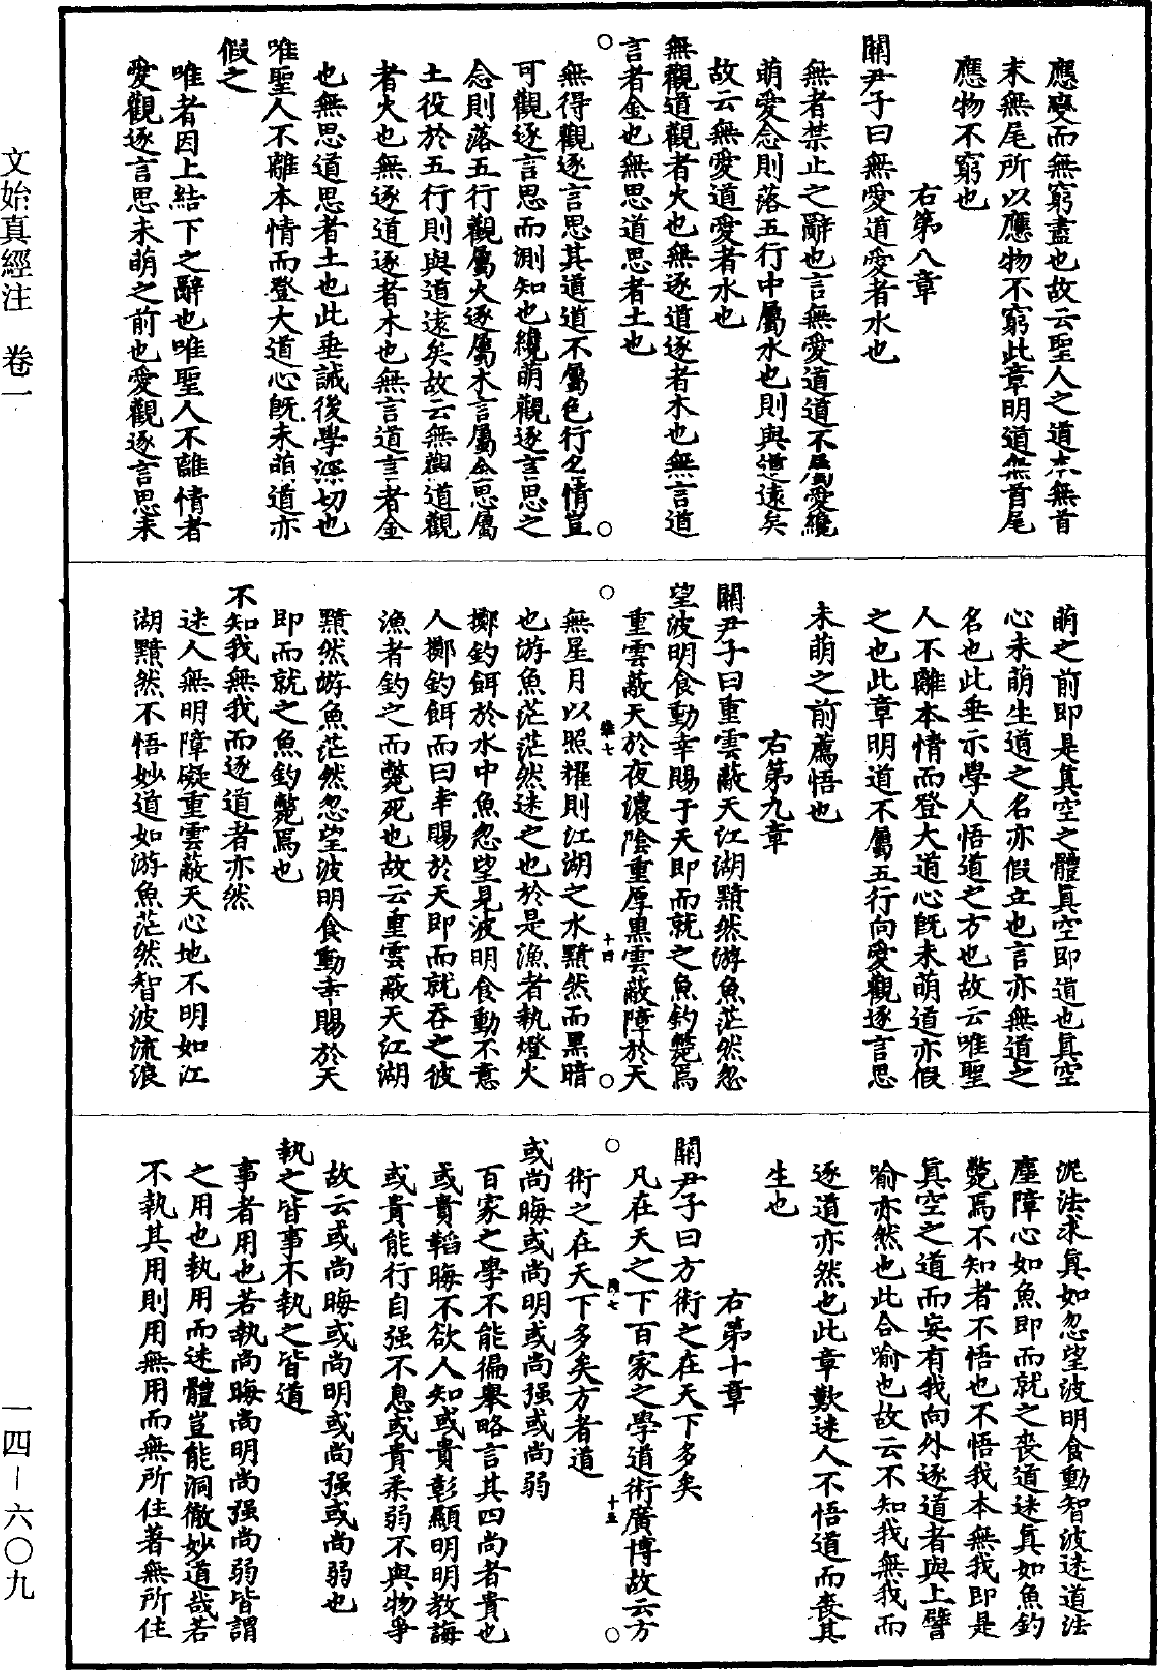 應變而無窮盡也故云聖人之道本無首
末無尾所以應物不窮此章明道無首尾
應物不窮也
右第八章
關尹子曰無愛道愛者水也
無者禁止之辭也言無愛道道不屬愛纔
萌愛念則落五行中屬水也則與道遠矣
故云無愛道愛者水也
無觀道觀者火也無逐道逐者木也無言道
言者金也無思道思者土也
無得觀逐言思其道道不屬色行名情豈
可觀逐言思而測知也纔萌觀逐言思之
念則落五行觀屬火逐屬木言屬金思屬
土役於五行則與道遠矣故云無觀道觀
者火也無逐道逐者木也無言道言者金
也無思道思者土也此垂誡後學深切也
唯聖人不離本情而登大道心既未萌道亦
假之
唯者因上結下之辭也唯聖人不離情者
愛觀逐言思未萌之前也愛觀逐言思未
萌之前即是真空之體真空即道也真空
心未萌生道之名亦假立也言亦無道之
名也此垂示學人悟道之方也故云唯聖
人不離本情而登大道心既未萌道亦假
之也此章明道不屬五行向愛觀逐言思
未萌之前薦悟也
右第九章
關尹子曰重雲蔽天江湖黮然游魚茫然忽
望波明食動幸賜于天即而就之魚釣斃焉
重雲蔽天於夜濃陰重厚黑雲蔽障於天
無星月以照耀則江湖之水黮然而黑暗
也游魚茫茫然迷之也於是漁者執燈火
擲釣餌於水中魚忽望見波明食動不意
人擲釣餌而曰幸賜於天即而就吞之彼
漁者釣之而斃死也故云重雲蔽天江湖
黮然游魚茫然忽望波明食動幸賜於天
即而就之魚釣斃焉也
不知我無我而逐道者亦然
迷人無明障礙重雲蔽天心地不明如江
湖黮然不悟妙道如游魚茫然智波流浪
泥法求真如忽望波明食動智波迷道法
塵障心如魚即而就之喪道迷真如魚釣
斃焉不知者不悟也不悟我本無我即是
真空之道而妄有我向外逐道者與上譬
喻亦然也此合喻也故云不知我無我而
逐道亦然也此章歎迷人不悟道而喪其
生也
右第十章
關尹子曰方術之在天下多矣
凡在天之下百家之學道術廣博故云方
術之在天下多矣方者道
或尚晦或尚明或尚强或尚弱
百家之學不能徧舉略言其四尚者貴也
或貴韜晦不欲人知或貴彰顯明明教誨
或貴能行自强不息或貴柔弱不與物爭
故云或尚晦或尚明或尚强或尚弱也
執之皆事不執之皆道
事者用也若執尚晦尚明尚强尚弱皆謂
之用也執用而迷體豈能洞徹妙道哉若
不執其用則用無用而無所住著無所住
十四
十五
文始真經注 卷一
一四－六〇九